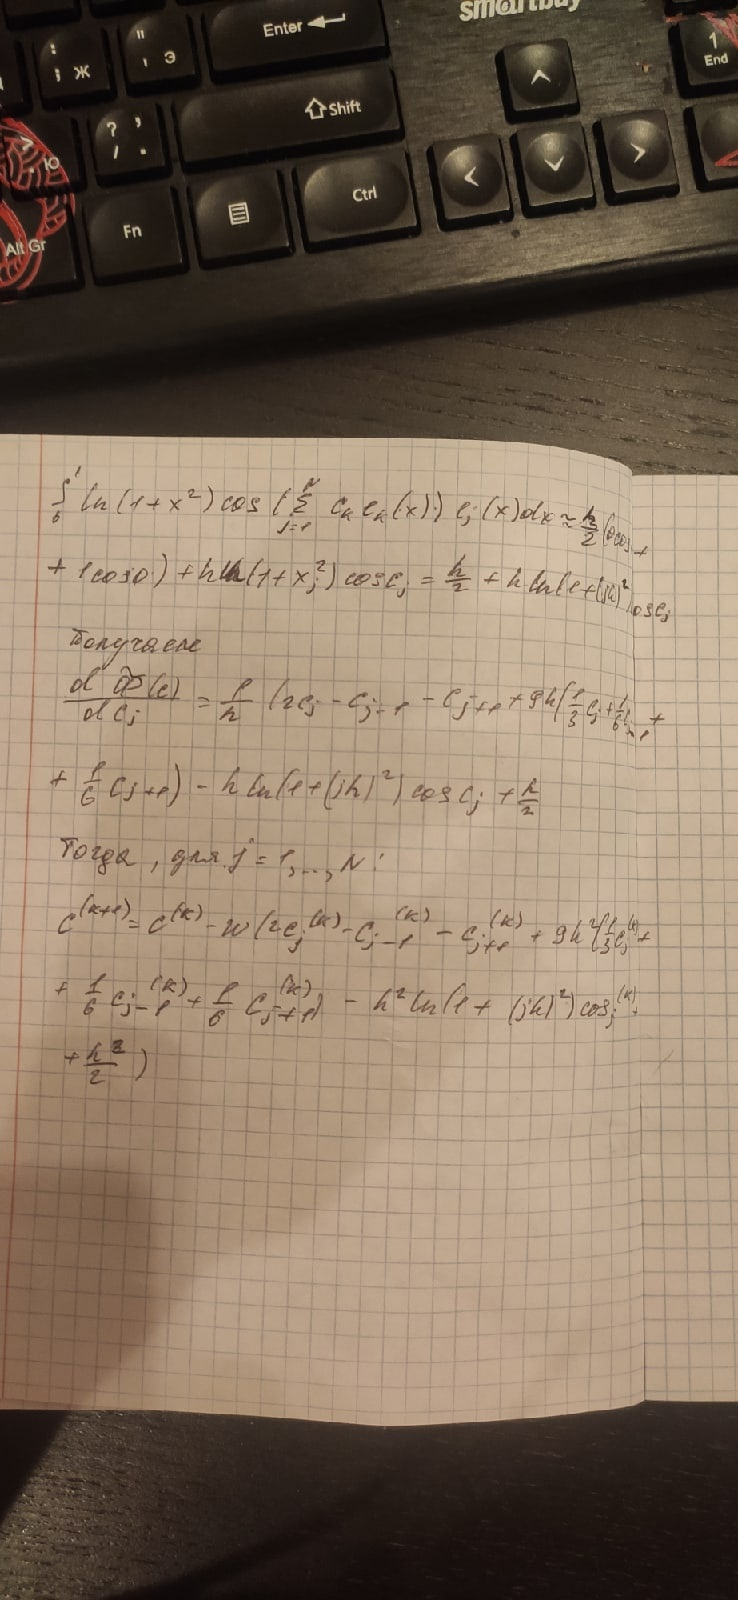 smartbuy
; Ж
" ' Э
Enter
1 End
? , . 
Shift
Ю
Alt Gr
Fn
Ctrl
∫₀¹ ln(1+x²) cos(∑_{j=1}^{N} c_k e_k(x)) e_j(x)dx ≈ h/2 (0cos +
+ 1cos0) + h ln(1+x_j²) cos c_j = h/2 + h ln(1+(jh)²)cos c_j
Получаем
d Ф(c)/d c_j = 1/h (2c_j - c_{j-1} - c_{j+1} + 9h(1/3 c_j + 1/6 c_{j-1} +
+ 1/6 c_{j+1}) - h ln(1+(jh)²) cos c_j + h/2
Тогда, для j = 1,..., N:
c^{(k+1)} = c^{(k)} - w(2c_j^{(k)} - c_{j-1}^{(k)} - c_{j+1}^{(k)} + 9h²(1/3 c_j^{(k)} +
+ 1/6 c_{j-1}^{(k)} + 1/6 c_{j+1}^{(k)}) - h² ln(1 + (jh)²) cos_j^{(k)}
+ h²/2)